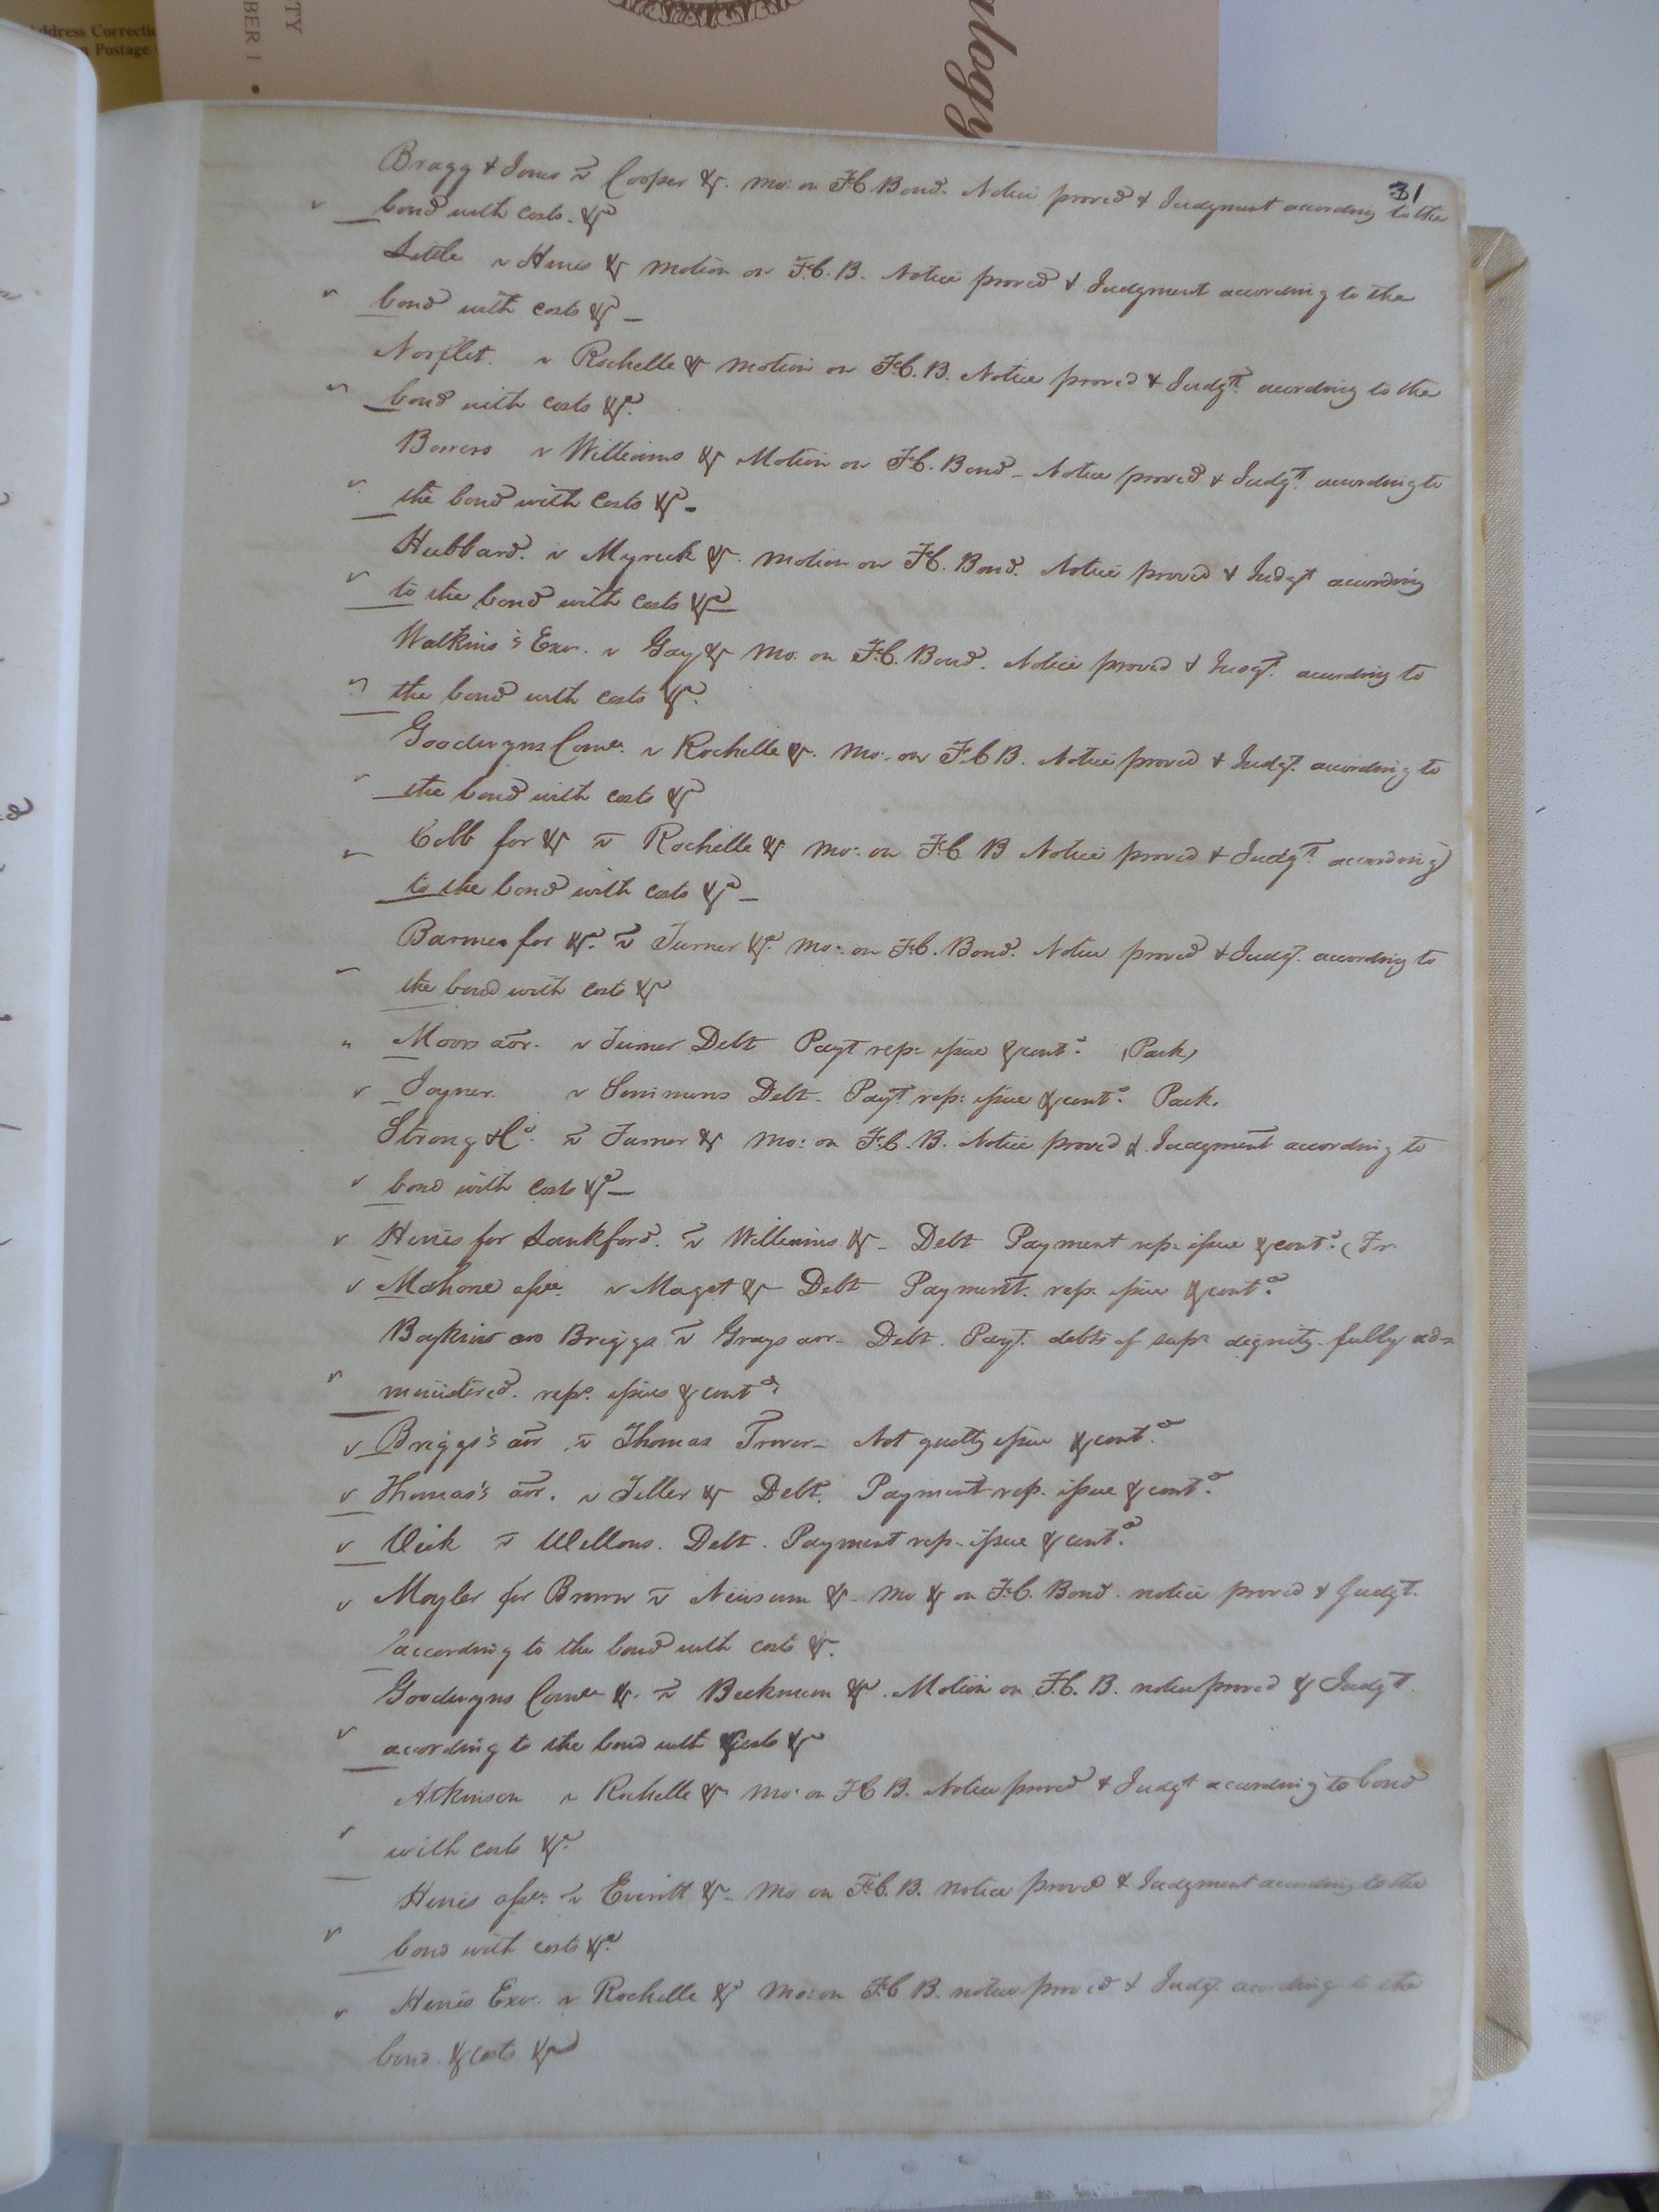 ddress Correctio
n Postage
BER 1 •
TY
ulogy
31
Bragg & Jones v Cooper &c. Mo: on F.C. Bond. Notice proved & Judgment according to the
bond with costs. &c
Little v Hines &c Motion on F.C. B. Notice proved & Judgment according to the
bond with costs &c —
Norflet. v Rochelle &c Motion on F.C. B. Notice proved & Judgt. according to the
bond with costs &c.
Bowers v Williams &c Motion on F.C. Bond – Notice proved & Judgt. according to
the bond with costs &c –
Hubbard. v Myrick &c. Motion on F.C. Bond. Notice proved & Judgt according
to the bond with costs &c —
Watkins's Exor. v Gay &c Mo: on F.C. Bond. Notice proved & Judgt. according to
the bond with costs &c.
Goodwyns Comee. v Rochelle &c. Mo: on F.C B. Notice proved & Judgt. according to
the bond with costs &c
Cobb for &c v Rochelle &c Mo: on F.C B Notice proved & Judgt. according
to the bond with costs &c —
Barnes for &c. v Turner &c. Mo: on F.C. Bond. Notice proved & Judgt. according to
the bond with costs &c
Moors aor. v Turner Debt Payt rep: issue & contd. (Park)
Joyner. v Simmons Debt – Payt. rep: issue & contd. Park.
Strong & Co. v Turner &c Mo: on F.C. B. Notice proved & Judgment according to
bond with costs &c —
Hines for Lankford. v Williams &c – Debt Payment rep: issue & contd. (Fr
Mahone assee. v Maget &c – Debt Payment. rep. issue & contd.
Boykins ars Briggs v Grays aor – Debt. Payt. debts of supr dignity – fully ad=
ministered. rep. issues & contd.
Briggs's aor v Thomas Trover – Not guilty issue & contd.
Thomas's aor. v Teller &c – Debt. Payment rep. issue & contd.
Vick v Wellons. Debt. Payment rep. issue & contd.
Moyler for Brown v Newsum &c – Mo &c on F.C. Bond. notice proved & Judgt.
according to the bond with costs &c.
Goodwyns Comee &c. v Beekmem &c. Motion on F.C. B. notice proved & Judgt.
according to the bond with costs &c
Atkinson v Rochelle &c Mo: on F.C B. Notice proved & Judgt according to bond
with costs &c.
Hines assee. v Everitt &c – Mo on F.C. B. notice proved & Judgment according to the
bond with costs &c.
Hines Exor. v Rochelle &c Mo: on F.C B. notice proved & Judgt. according to the
bond. & costs &c